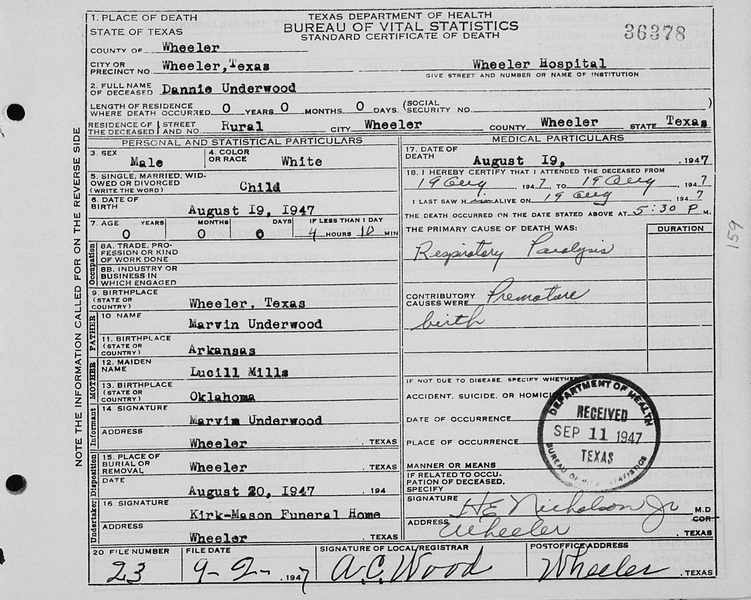 TEXAS DEPARTMENT OF HEALTH
BUREAU OF VITAL STATISTICS
STANDARD CERTIFICATE OF DEATH
36378
1. PLACE OF DEATH
STATE OF TEXAS
COUNTY OF Wheeler
CITY OR PRECINCT NO. Wheeler, Texas
Wheeler Hospital
GIVE STREET AND NUMBER OR NAME OF INSTITUTION
2. FULL NAME OF DECEASED Dannie Underwood
LENGTH OF RESIDENCE WHERE DEATH OCCURRED 0 YEARS 0 MONTHS 0 DAYS. (SOCIAL SECURITY NO.
RESIDENCE OF THE DECEASED STREET AND NO. Rural CITY Wheeler COUNTY Wheeler STATE Texas
PERSONAL AND STATISTICAL PARTICULARS
3. SEX Male
4. COLOR OR RACE White
5. SINGLE, MARRIED, WIDOWED OR DIVORCED (WRITE THE WORD) Child
6. DATE OF BIRTH August 19, 1947
7. AGE YEARS MONTHS DAYS IF LESS THAN 1 DAY
0 0 0 4 HOURS 10 MIN
Occupation
8A. TRADE, PROFESSION OR KIND OF WORK DONE
8B. INDUSTRY OR BUSINESS IN WHICH ENGAGED
9. BIRTHPLACE (STATE OR COUNTRY) Wheeler, Texas
FATHER
10 NAME Marvin Underwood
11. BIRTHPLACE (STATE OR COUNTRY) Arkansas
MOTHER
12. MAIDEN NAME Lucill Mills
13. BIRTHPLACE (STATE OR COUNTRY) Oklahoma
Informant
14 SIGNATURE Marvin Underwood
ADDRESS Wheeler , TEXAS
Undertaker Disposition
15. PLACE OF BURIAL OR REMOVAL Wheeler , TEXAS
DATE August 20, 1947 194
16 SIGNATURE Kirk-Mason Funeral Home
ADDRESS Wheeler , TEXAS
MEDICAL PARTICULARS
17. DATE OF DEATH August 19, , 1947
18. I HEREBY CERTIFY THAT I ATTENDED THE DECEASED FROM
19 Aug 1947 TO 19 Aug 1947
I LAST SAW Him ALIVE ON 19 Aug 1947
THE DEATH OCCURRED ON THE DATE STATED ABOVE AT 5:30 P M.
THE PRIMARY CAUSE OF DEATH WAS: DURATION
Respiratory Paralysis
CONTRIBUTORY CAUSES WERE Premature
birth
IF NOT DUE TO DISEASE, SPECIFY WHETHER
ACCIDENT, SUICIDE, OR HOMICIDE
DATE OF OCCURRENCE
PLACE OF OCCURRENCE
MANNER OR MEANS
IF RELATED TO OCCUPATION OF DECEASED, SPECIFY
DEPARTMENT OF HEALTH
RECEIVED
SEP 11 1947
TEXAS
BUREAU OF VITAL STATISTICS
SIGNATURE HE Nicholson Jr M.D.
COR
ADDRESS Wheeler , TEXAS
20 FILE NUMBER 23
FILE DATE 9-2- 1947
SIGNATURE OF LOCAL REGISTRAR A.C. Wood
POSTOFFICE ADDRESS Wheeler , TEXAS
NOTE THE INFORMATION CALLED FOR ON THE REVERSE SIDE
159